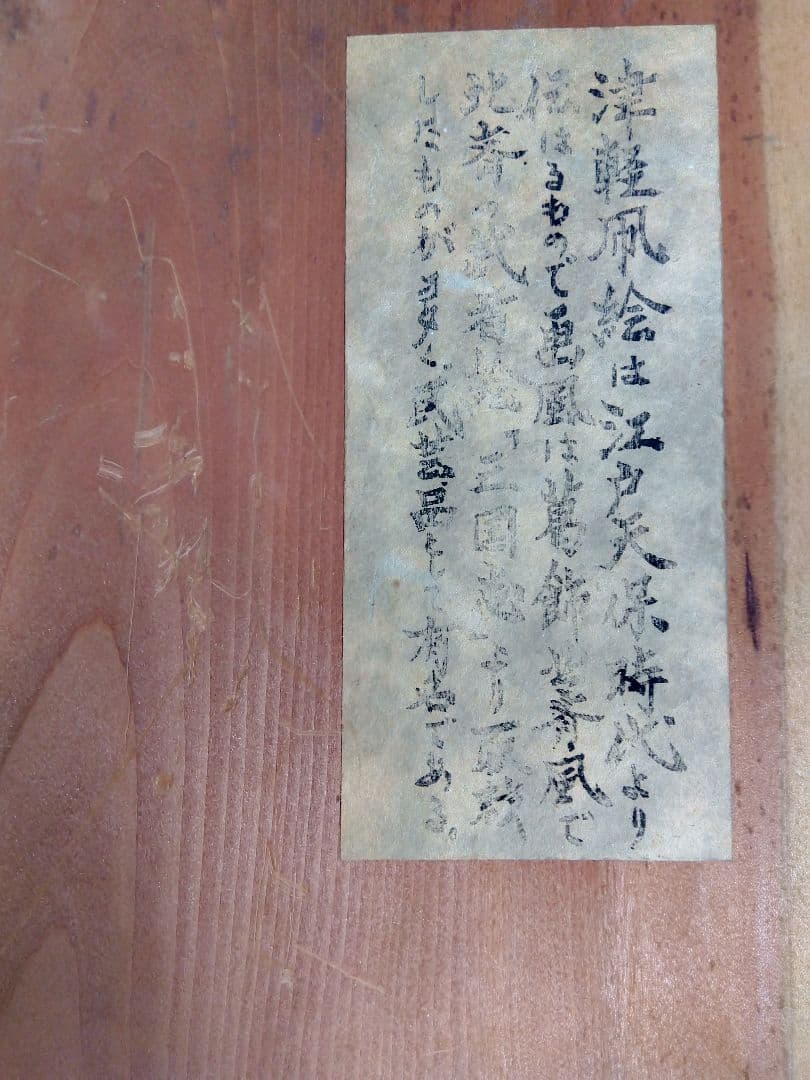 津軽凧絵は江戸天保時代より
伝はるもので画風は葛飾北斎風で
北斎の武者絵「三国志」より取材
したものが多く民芸品として有名である。